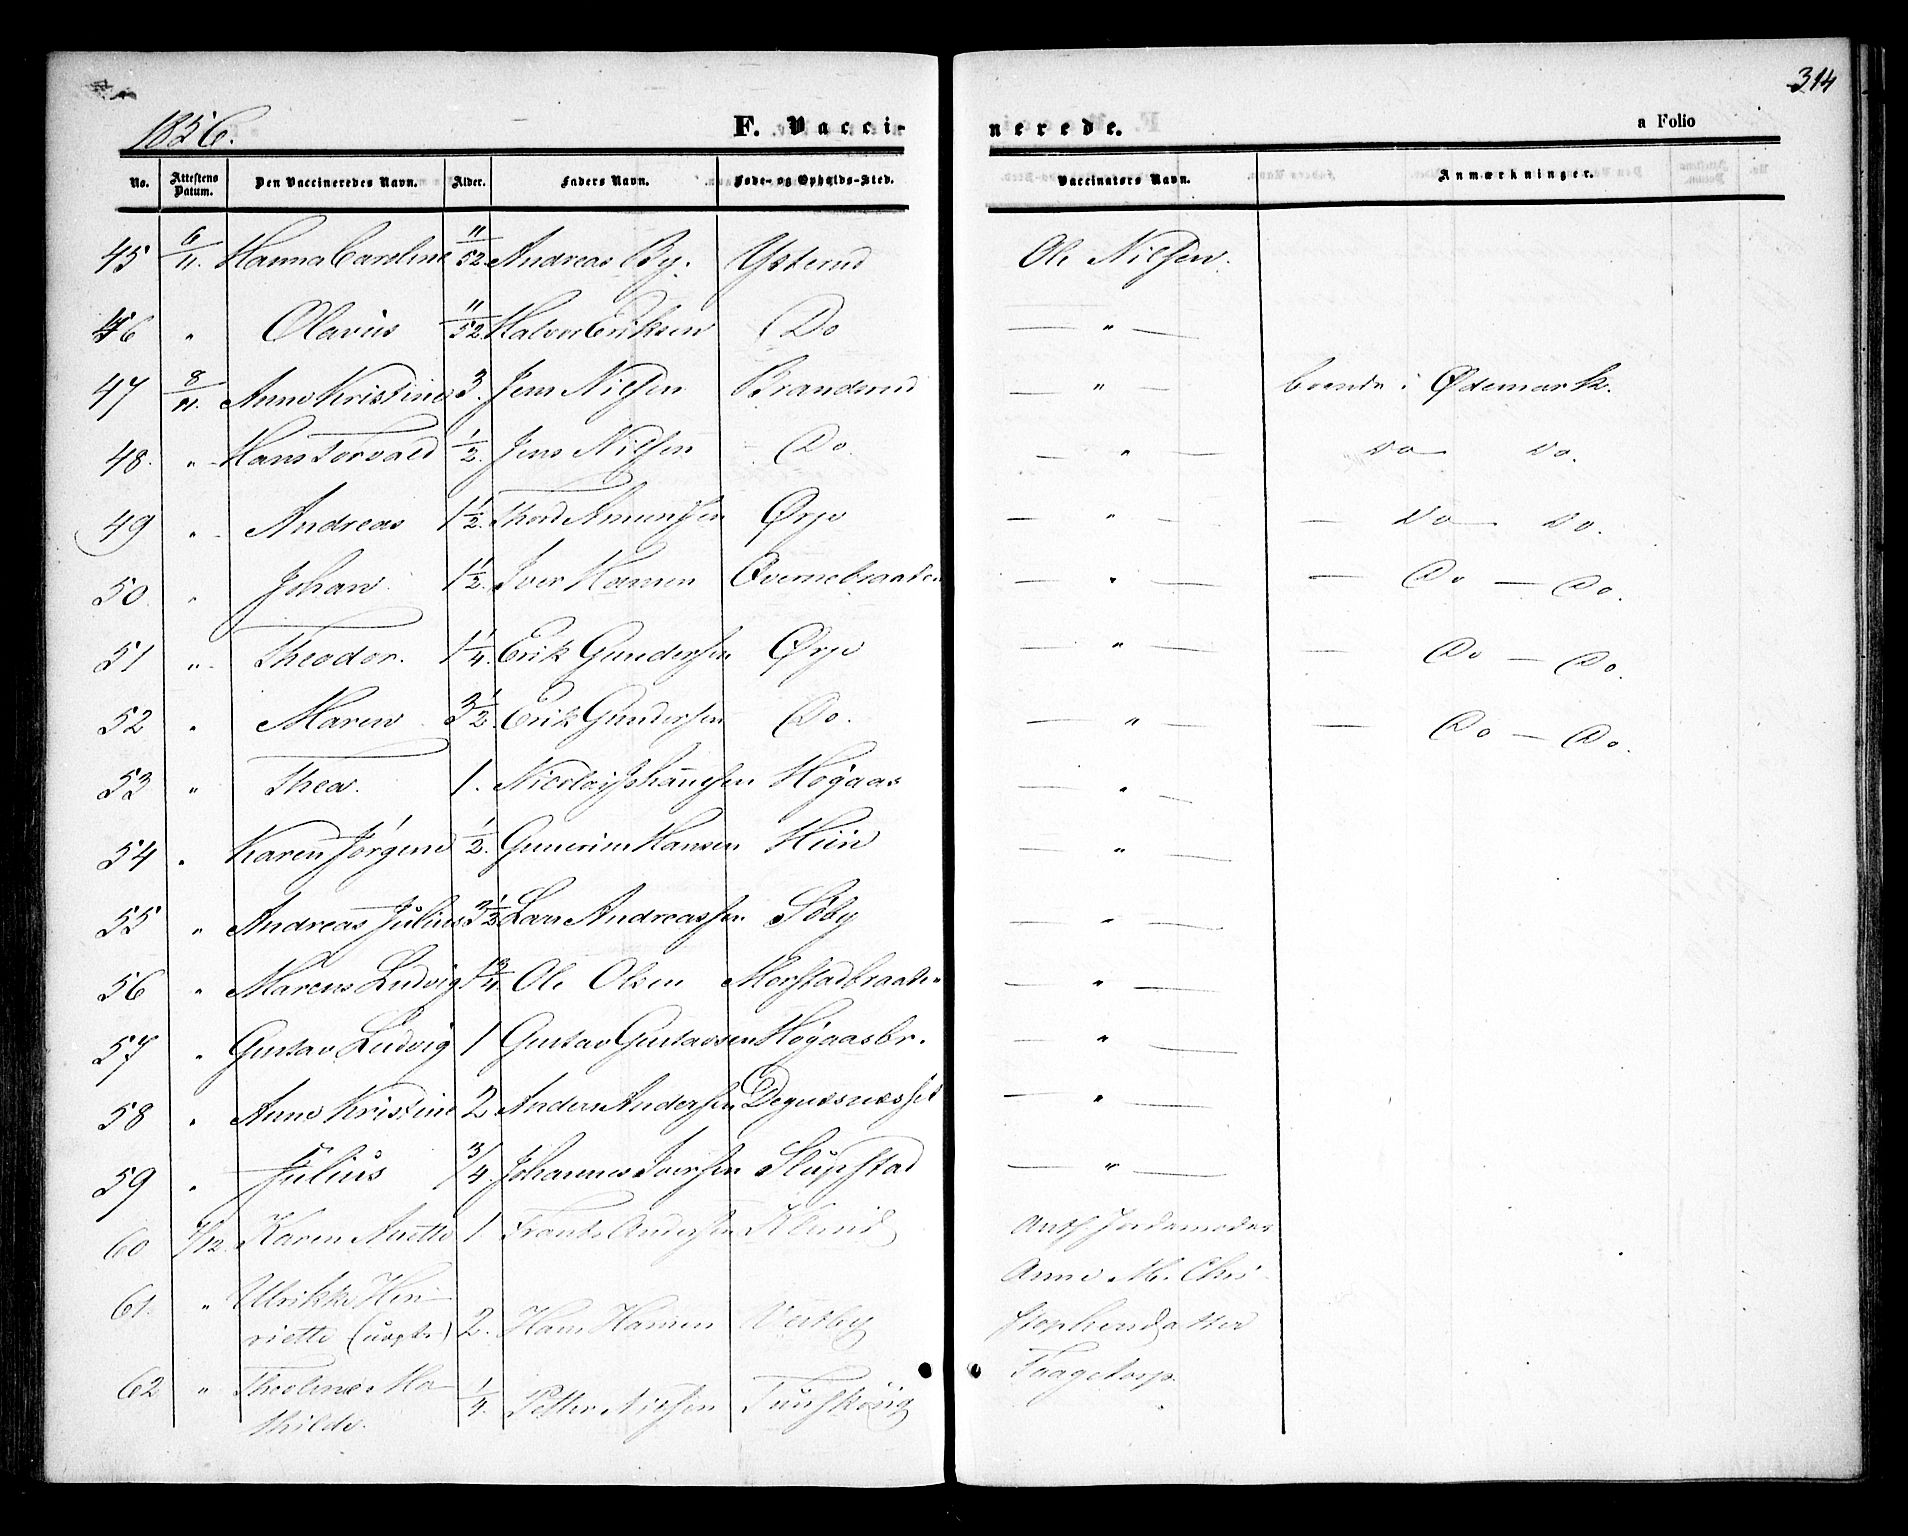 314
1856.
F. Vaccinerede.
a Folio
No. Attestens Datum. Den Vaccineredes Navn. Alder. Faders Navn. Føde- og Opholds-Sted. Vaccinators Navn. Anmærkninger.
45 6/11. Hanna Caroline 11/52 Andreas By. Ysterud Ole Nilsen.
46 " Olavus 11/52 Halvor Eriksen Do — " —
47 8/11. Anne Kristine 3. Jens Nilsen Branderud — " — boende i Ødemark.
48. " Hans Torvald 1/2. Jens Nilsen — Do. — " — Do — Do.
49 " Andreas 1 1/2. Thord Amundsen Ørje — " — — Do — Do.
50. " Johan 1 1/2. Iver Hansen — " — — Do — Do.
51 " Theodor. 1 1/4. Erik Gundersen Ørje — " — — Do — Do.
52 " Maren 3 1/2. Erik Gundersen Do. — " — — Do — Do.
53 " Thea. 1. Nicolai Johannsen Høgaas — " —
54 " Karen Jørgine 1/2. Hansen Hiin — " —
55 " Andreas Julius 3 1/2 Lars Andreassen Søby — " —
56 " Marcus Ludvig 1 3/4. Ole Olsen Mørstadbraaten — " —
57 " Gustav Ludvig 1 Gustav Gustavsen Høgaasbr. — " —
58 " Anne Kristine 2 Anders Andersen — " —
59 " Julius 3/4. Johannes Iversen Slupstad — " —
60 /12. Karen Anette 1 Frants Andersen Klund Auth Jordemoder
61. " Ulrikke Hen- Anne M. Chri-
riette (uægte) 2. Hans Hansen Vestby stophersdatter
62 " Theoline Ma- 1/4. Petter Nilsen Faagetorp.
thilde.